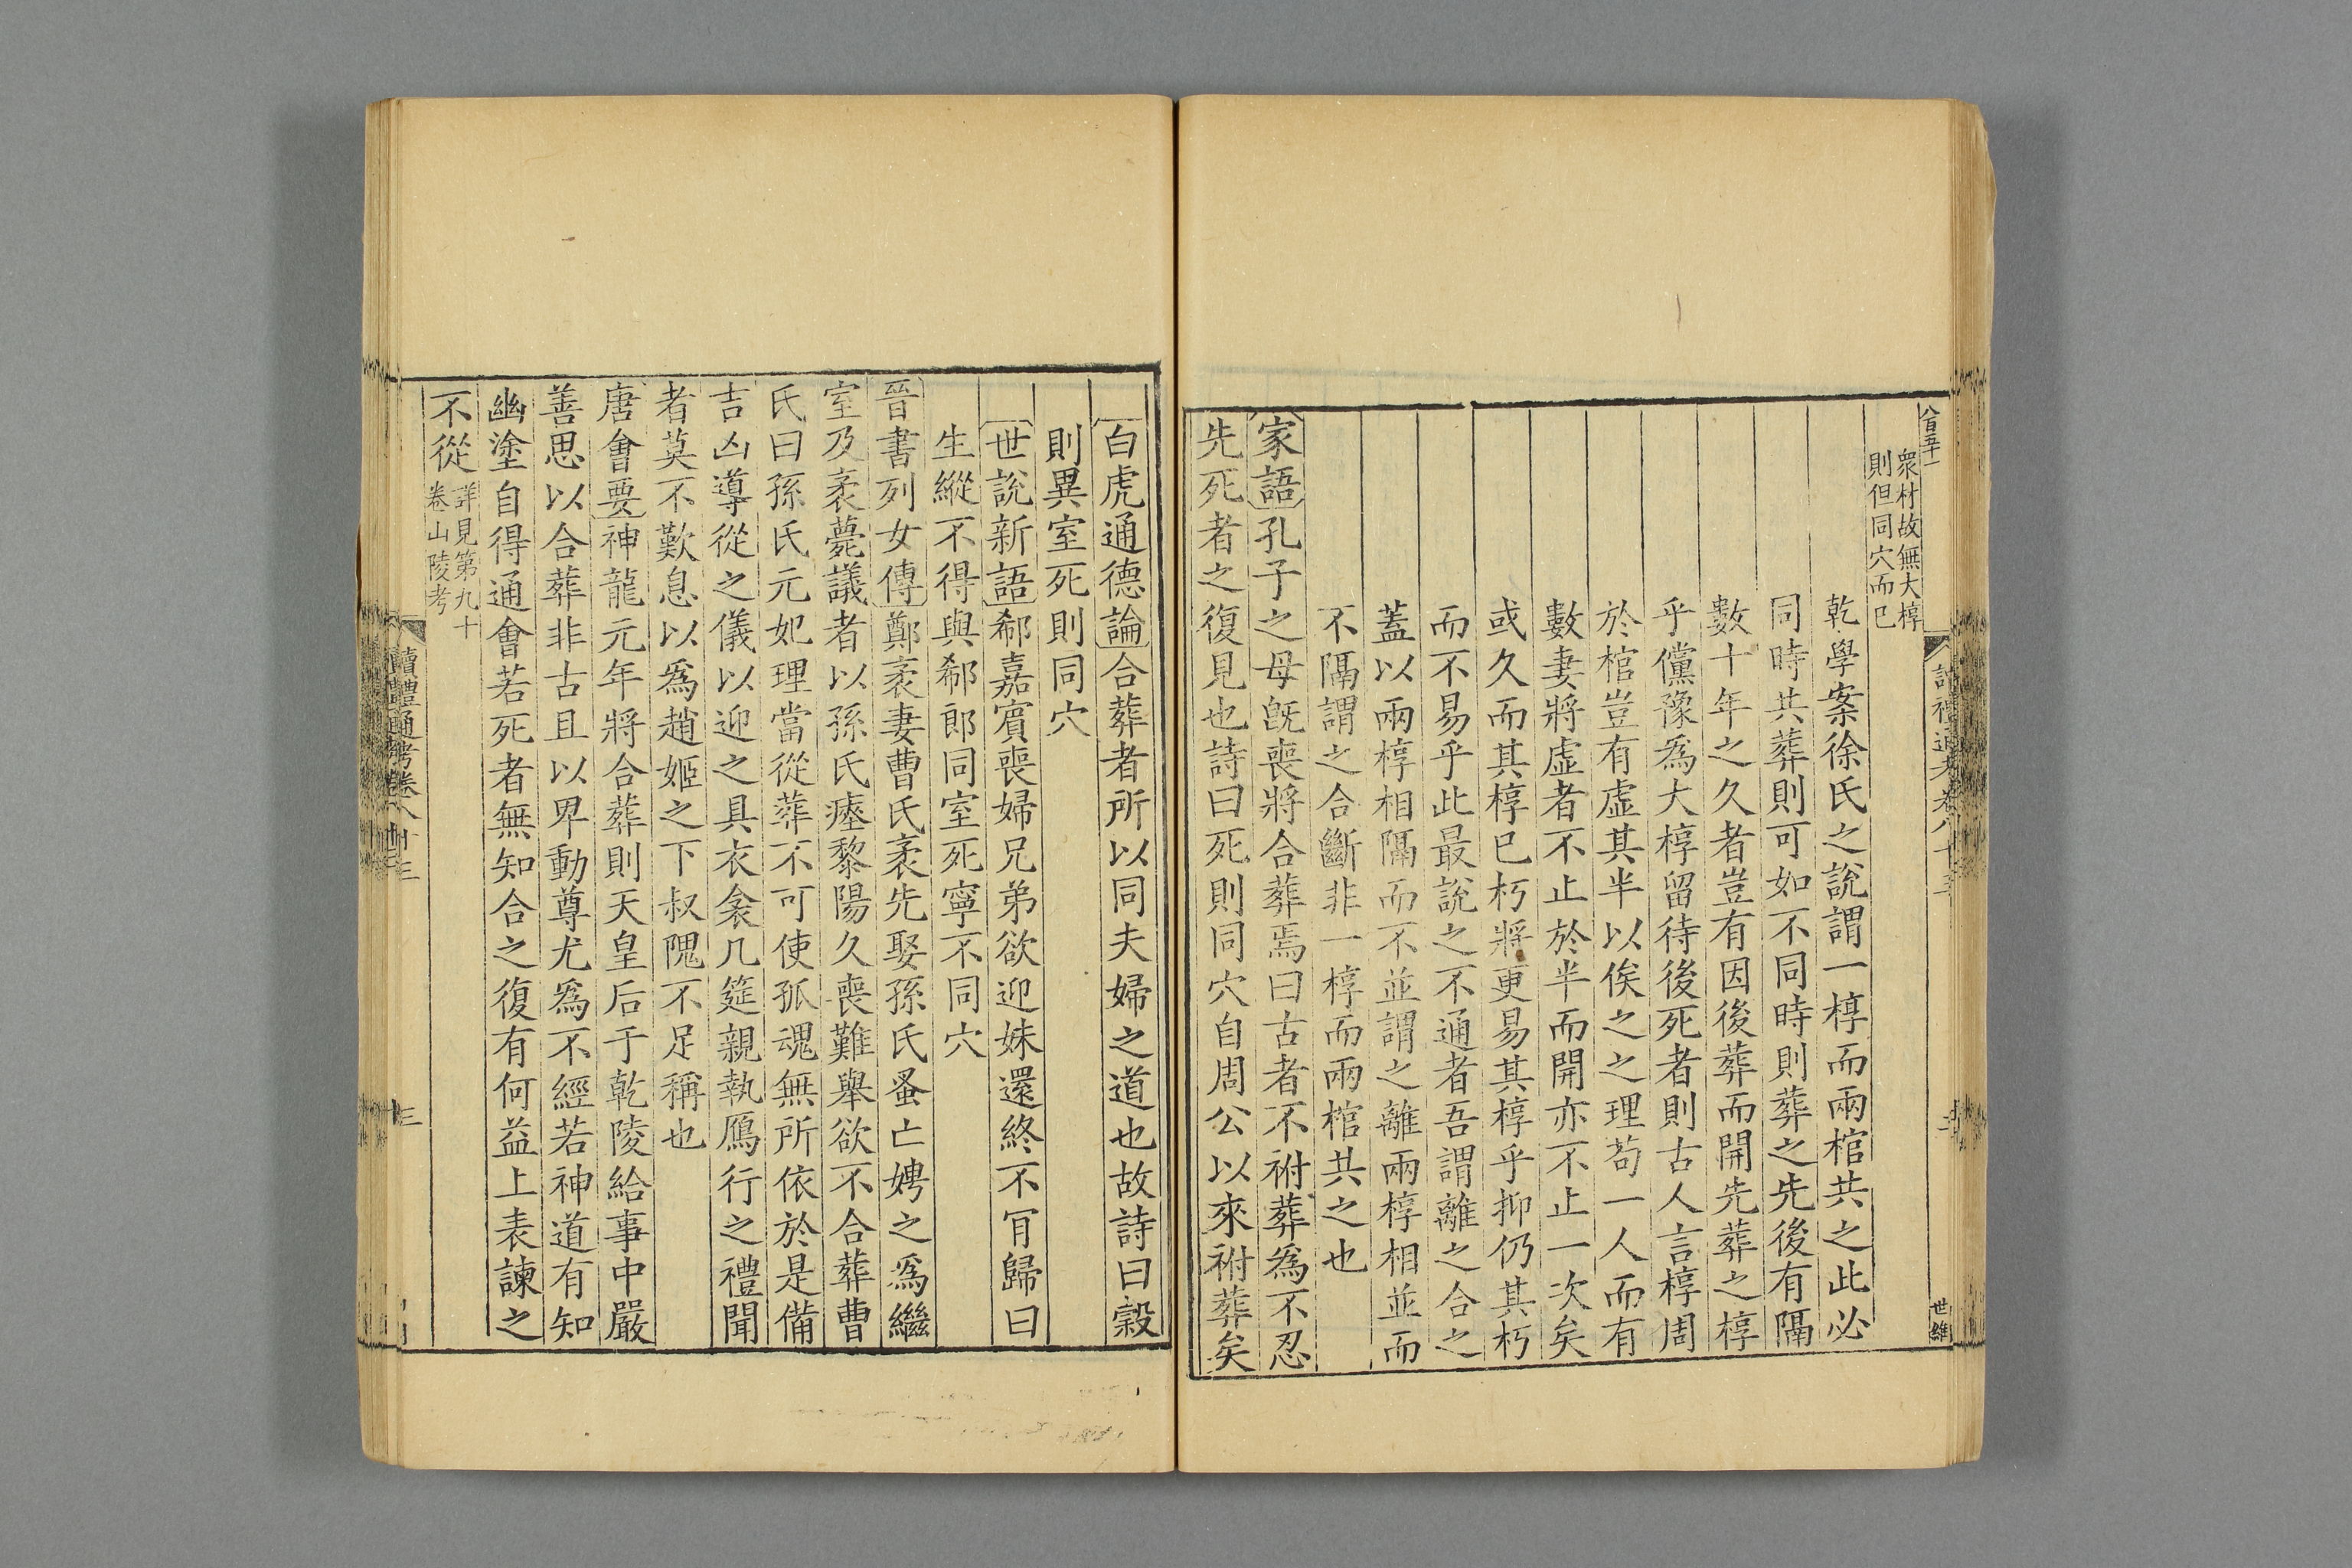 衆材故無大椁
則但同穴而已
乾學案徐氏之說謂一椁而兩棺共之此必
同時共葬則可如不同時則葬之先後有隔
數十年之久者豈有因後葬而開先葬之椁
乎儻豫爲大椁留待後死者則古人言椁周
於棺豈有虛其半以俟之之理苟一人而有
數妻將虛者不止於半而開亦不止一次矣
或久而其椁已朽將更易其椁乎抑仍其朽
而不易乎此最說之不通者吾謂離之合之
蓋以兩椁相隔而不並謂之離兩椁相並而
不隔謂之合斷非一椁而兩棺共之也
家語孔子之母旣喪將合葬焉曰古者不祔葬爲不忍
先死者之復見也詩曰死則同穴自周公以來祔葬矣
世維
白虎通德論合葬者所以同夫婦之道也故詩曰穀
則異室死則同穴
世說新語郗嘉賓喪婦兄弟欲迎妹還終不肎歸曰
生縱不得與郗郎同室死寧不同穴
晉書列女傳鄭袤妻曹氏袤先娶孫氏蚤亡娉之爲繼
室及袤薨議者以孫氏瘞黎陽久喪難舉欲不合葬曹
氏曰孫氏元妃理當從葬不可使孤魂無所依於是備
吉凶導從之儀以迎之具衣衾几筵親執鴈行之禮聞
者莫不歎息以爲趙姬之下叔隗不足稱也
唐會要神龍元年將合葬則天皇后于乾陵給事中嚴
善思以合葬非古且以卑動尊尤爲不經若神道有知
幽塗自得通會若死者無知合之復有何益上表諫之
不從詳見第九十
卷山陵考
讀禮通考卷八十三
三